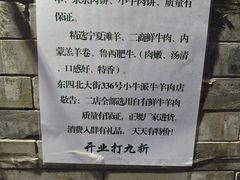 串、京东肉饼、小牛肉饼、质量有
保证。
精选宁夏滩羊、二商鲜牛肉、内
蒙羔羊卷、鲁西肥牛.（肉嫩、汤清
、口感好、特香）。
东四北大街336号小牛派牛羊肉店
敬告：二店全部选用自有鲜牛羊肉
质量有保证，正规厂家进货.
消费入群有礼品，天天有特价！
开业打九折